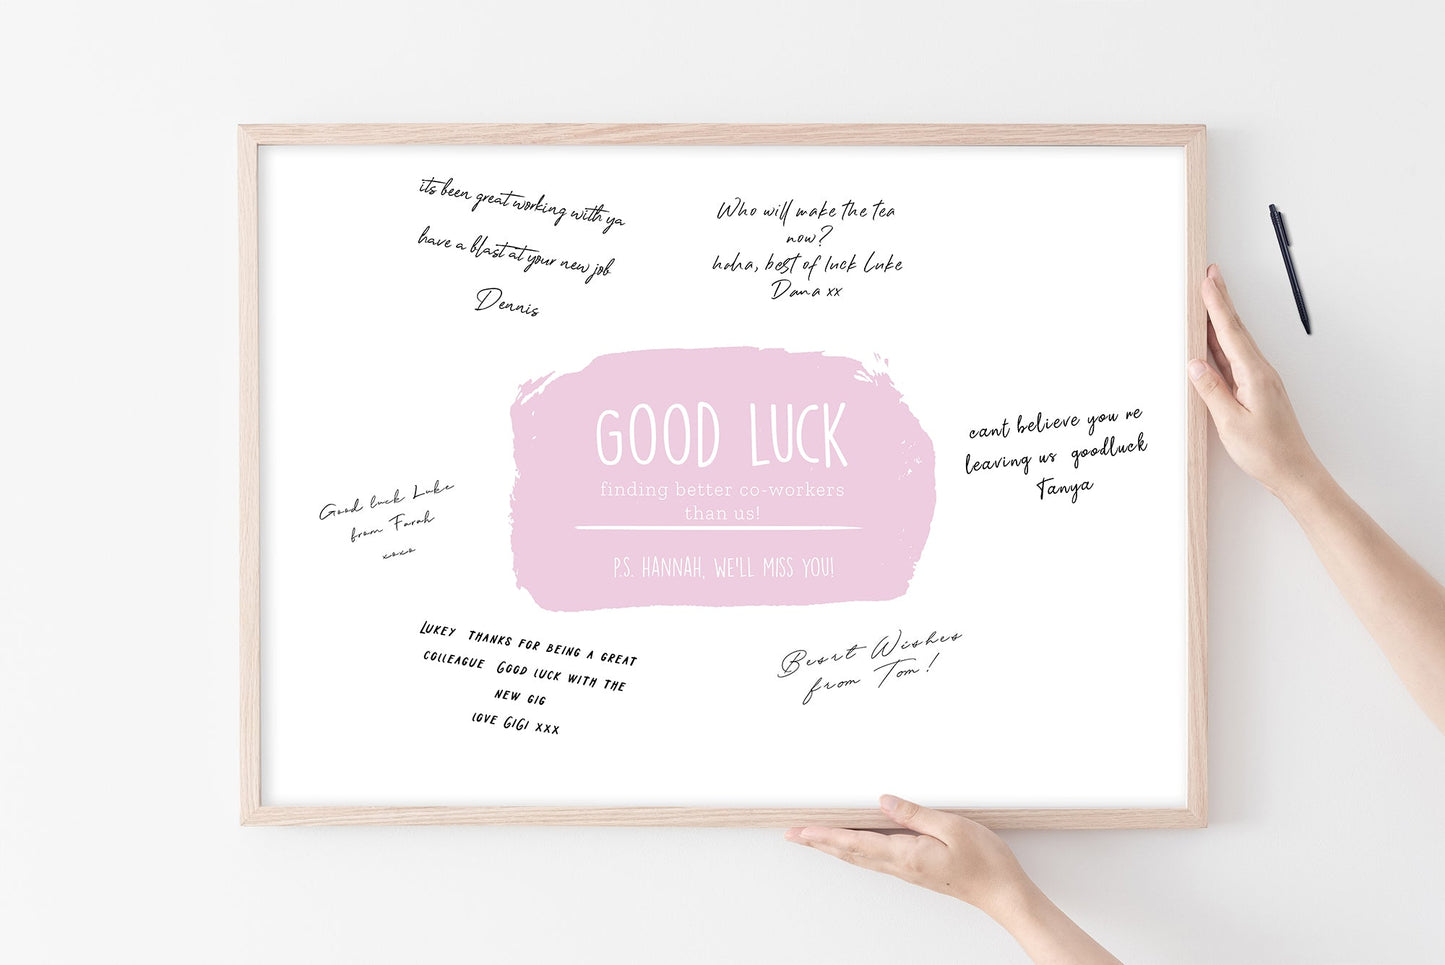 its been great working with ya
have a blast at your new job
Dennis
Who will make the tea
now?
haha, best of luck Luke
Dana xx
GOOD LUCK
finding better co-workers
than us!
P.S. HANNAH, WE'LL MISS YOU!
cant believe you re
leaving us goodluck
Tanya
Good luck Luke
from Farah
xoxo
LUKEY THANKS FOR BEING A GREAT
COLLEAGUE GOOD LUCK WITH THE
NEW GIG
LOVE GIGI XXX
Besrt Wishes
from Tom!